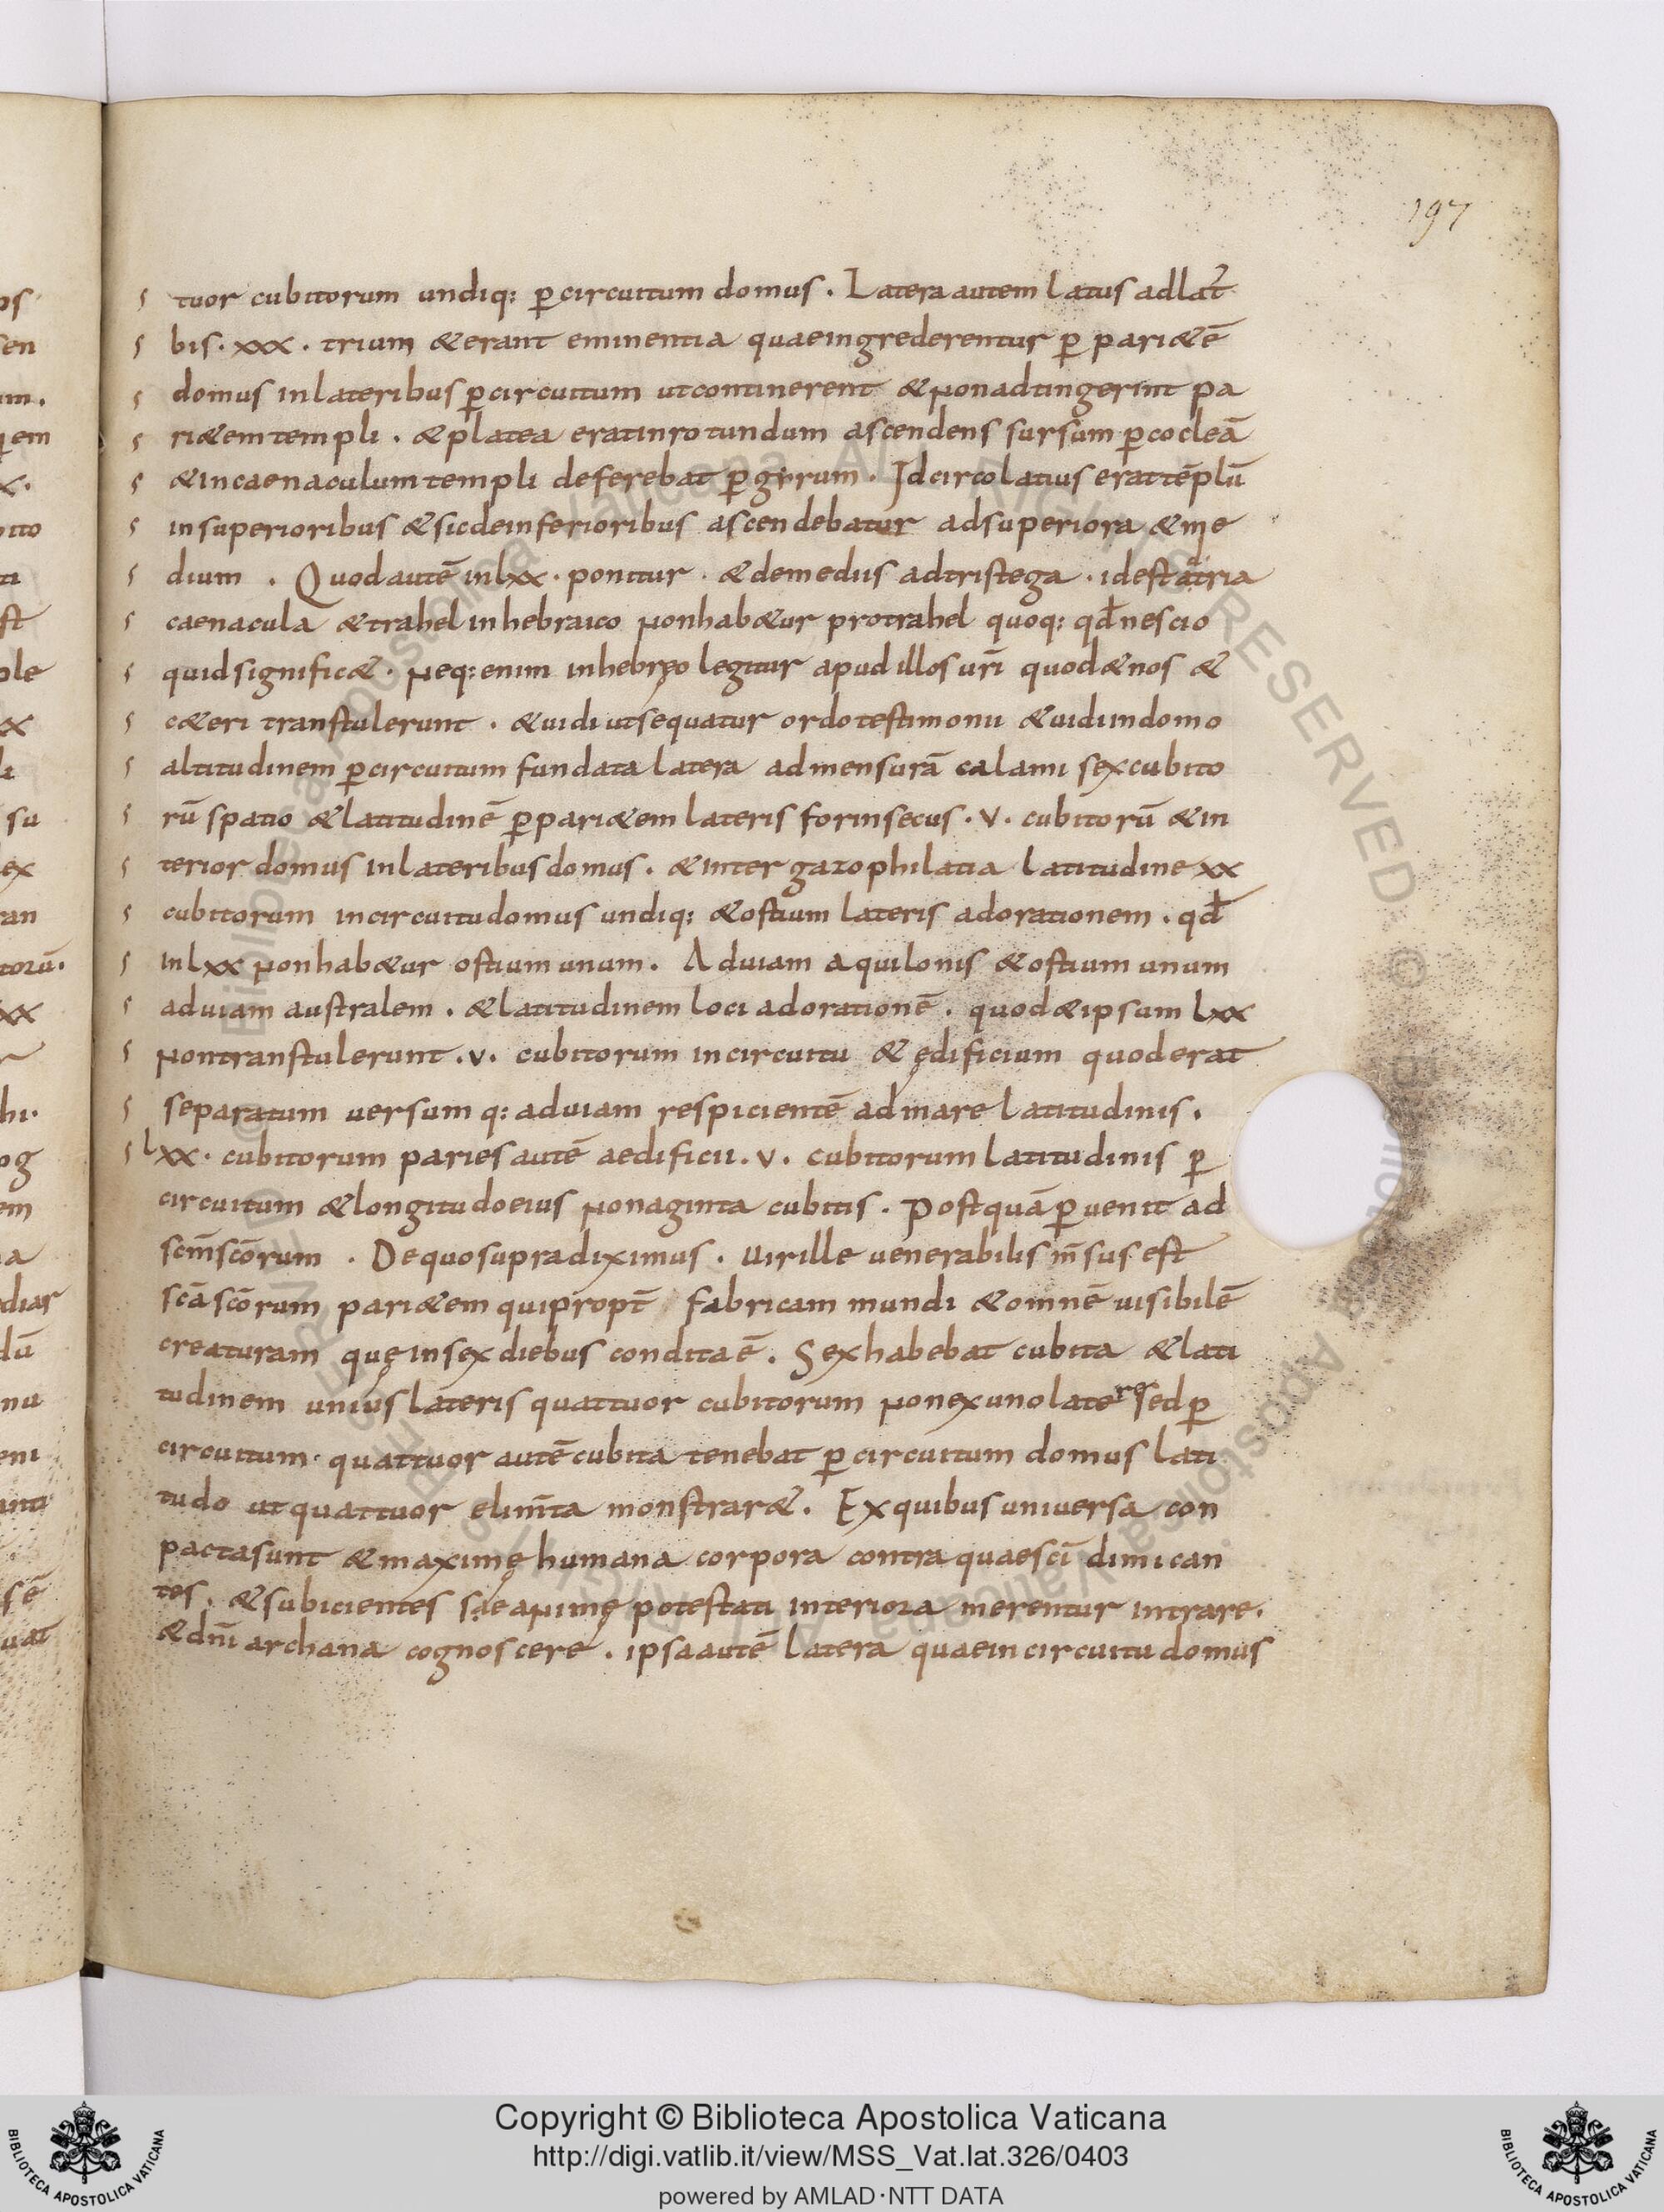 197
tuor cubitorum undiq: p̱circuitum domus . Latera autem latus adlat̄
bis . xxx . trium &erant eminentia quaeingrederentur p̱ pari&ē
domus inlateribus p̱circuitum utcontinerent &nonadtingerint pa
ri&emtempli . &platea eratinrotundum ascendens sursum p̱cocleā
&incaenaculumtempli deferebat p̱gyrum . Idcircolatius erattēplū
insuperioribus &sicdeinferioribus ascendebatur adsuperiora &me
dium . Quodautē inlxx . ponitur . &demediis adtristega . idestatria
caenacula &trahel inhebraico nonhab&ur protrahel quoq: qđnescio
quidsignific& . neq:enim inhebręo legitur apudillos ur̄i quod&nos &
c&eri transtulerunt . &uidi utsequatur ordotestimonii &uidiindomo
altitudinem p̱circuitum fundata latera admensurā calami sexcubito
rū spatio &latitudinē p̱pari&em lateris forinsecus . v . cubitorū &in
terior domus inlateribusdomus . &inter gazophilatia latitudine xx
cubitorum incircuitudomus undiq: &ostium lateris adorationem . qđ
inlxx nonhab&ur ostiumunum . Aduiam aquilonis &ostium unum
aduiam australem . &latitudinem loci adorationē . quod&ipsum lxx
nontranstulerunt . v . cubitorum incircuitu & ędificium quoderat
separatum uersum q: aduiam respicientē admare latitudinis .
lxx . cubitorum paries autē aedificii . v . cubitorum latitudinis p̱
circuitum &longitudoeius nonaginta cubitis . Postquā p̱uenit ad
sc̄ms̄corum . Dequosupradiximus . uirille uenerabilis m̄susest
sc̄a sc̄orum pari&em quipropt̄ fabricam mundi &omnē uisibilē
creaturam quę insexdiebus condita ē . Sexhabebat cubita &lati
tudinem unius lateris quattuor cubitorum nonexunolatere sedp̱
circuitum . quattuor autēcubita tenebat p̱circuitum domus lati
tudo utquattuor elim̄ta monstrar& . Exquibus uniuersa con
pactasunt &maximę humana corpora contra quaesc̄i dimican
tes . &subicientes suęanimę potestati interiora merentur intrare .
&dn̄i archana cognoscere . ipsaautē latera quaeincircuitu domus
Copyright © Biblioteca Apostolica Vaticana
http://digi.vatlib.it/view/MSS_Vat.lat.326/0403
powered by AMLAD·NTT DATA
BIBLIOTECA APOSTOLICA VATICANA
BIBLIOTECA APOSTOLICA VATICANA